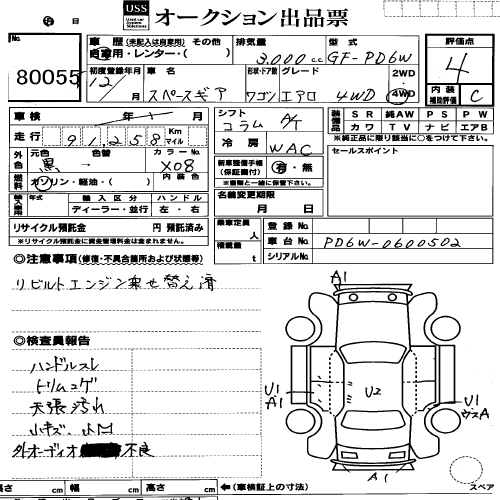 USS
Used car System Solutions
オークション出品票
80055
車歴 (未記入は自家用) その他
自家用・レンター・( )
排気量
3,000 cc
型式
GF-PD6W
評価点
4
初度登録年月
12 / 月
車名
スペースギア
形状・ドア数
ワゴン
グレード
エアロ 4WD
2WD
4WD
内装
補助評価
C
車検 年 月
走行 91,258 Km マイル
シフト
コラム A/T
冷房
WAC
装備品
SR 純AW PS PW
カワ TV ナビ エアB
※純正品に限り該当に○をつけて下さい。
外色
元色
黒
色替
→
カラーNo.
X08
燃料
ガソリン・軽油・( )
新車整備手帳
(保証書付) 有・無
※書類と一緒に保管下さい。
セールスポイント
輸入車用
年式 輸入区分 ハンドル
ディーラー・並行 左・右
名義変更期限
月 日
リサイクル預託金 円 預託済み
※リサイクル預託金に資金管理料金は含まれません。
乗車定員 人
積載量 t
登録No.
車台No. PD6W-0600502
シリアルNo.
◎注意事項(修復・不具合箇所および状態等)
リビルトエンジン乗せ替え済
◎検査員報告
ハンドルスレ
トリムコゲ
天張汚れ
小キズ、小凹
外オーディオ 不良
A1
U1
A1
U2
U1
A1
スペア
長さ cm 幅 cm 高さ cm ←(車検証上の寸法)